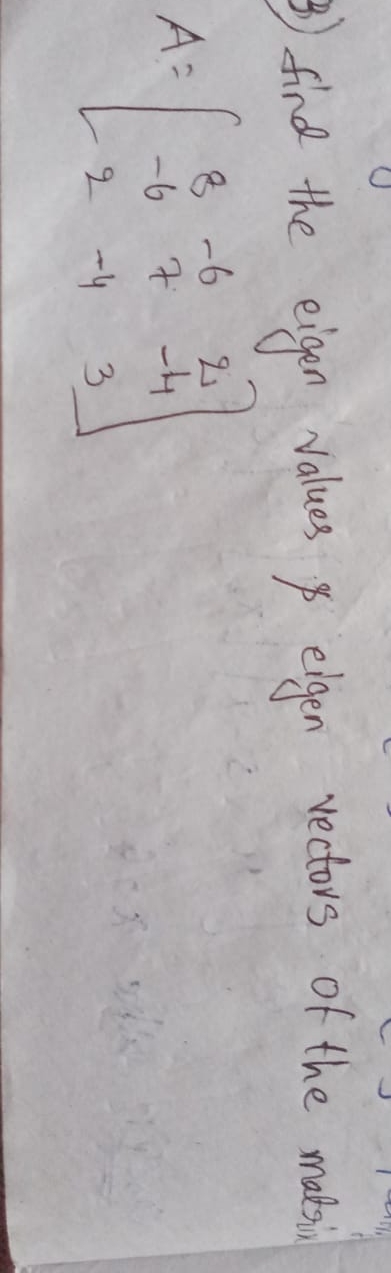 3) find the eigen values & eigen vectors of the matrix
A = [ 8 -6 2
-6 7 -4
2 -4 3 ]